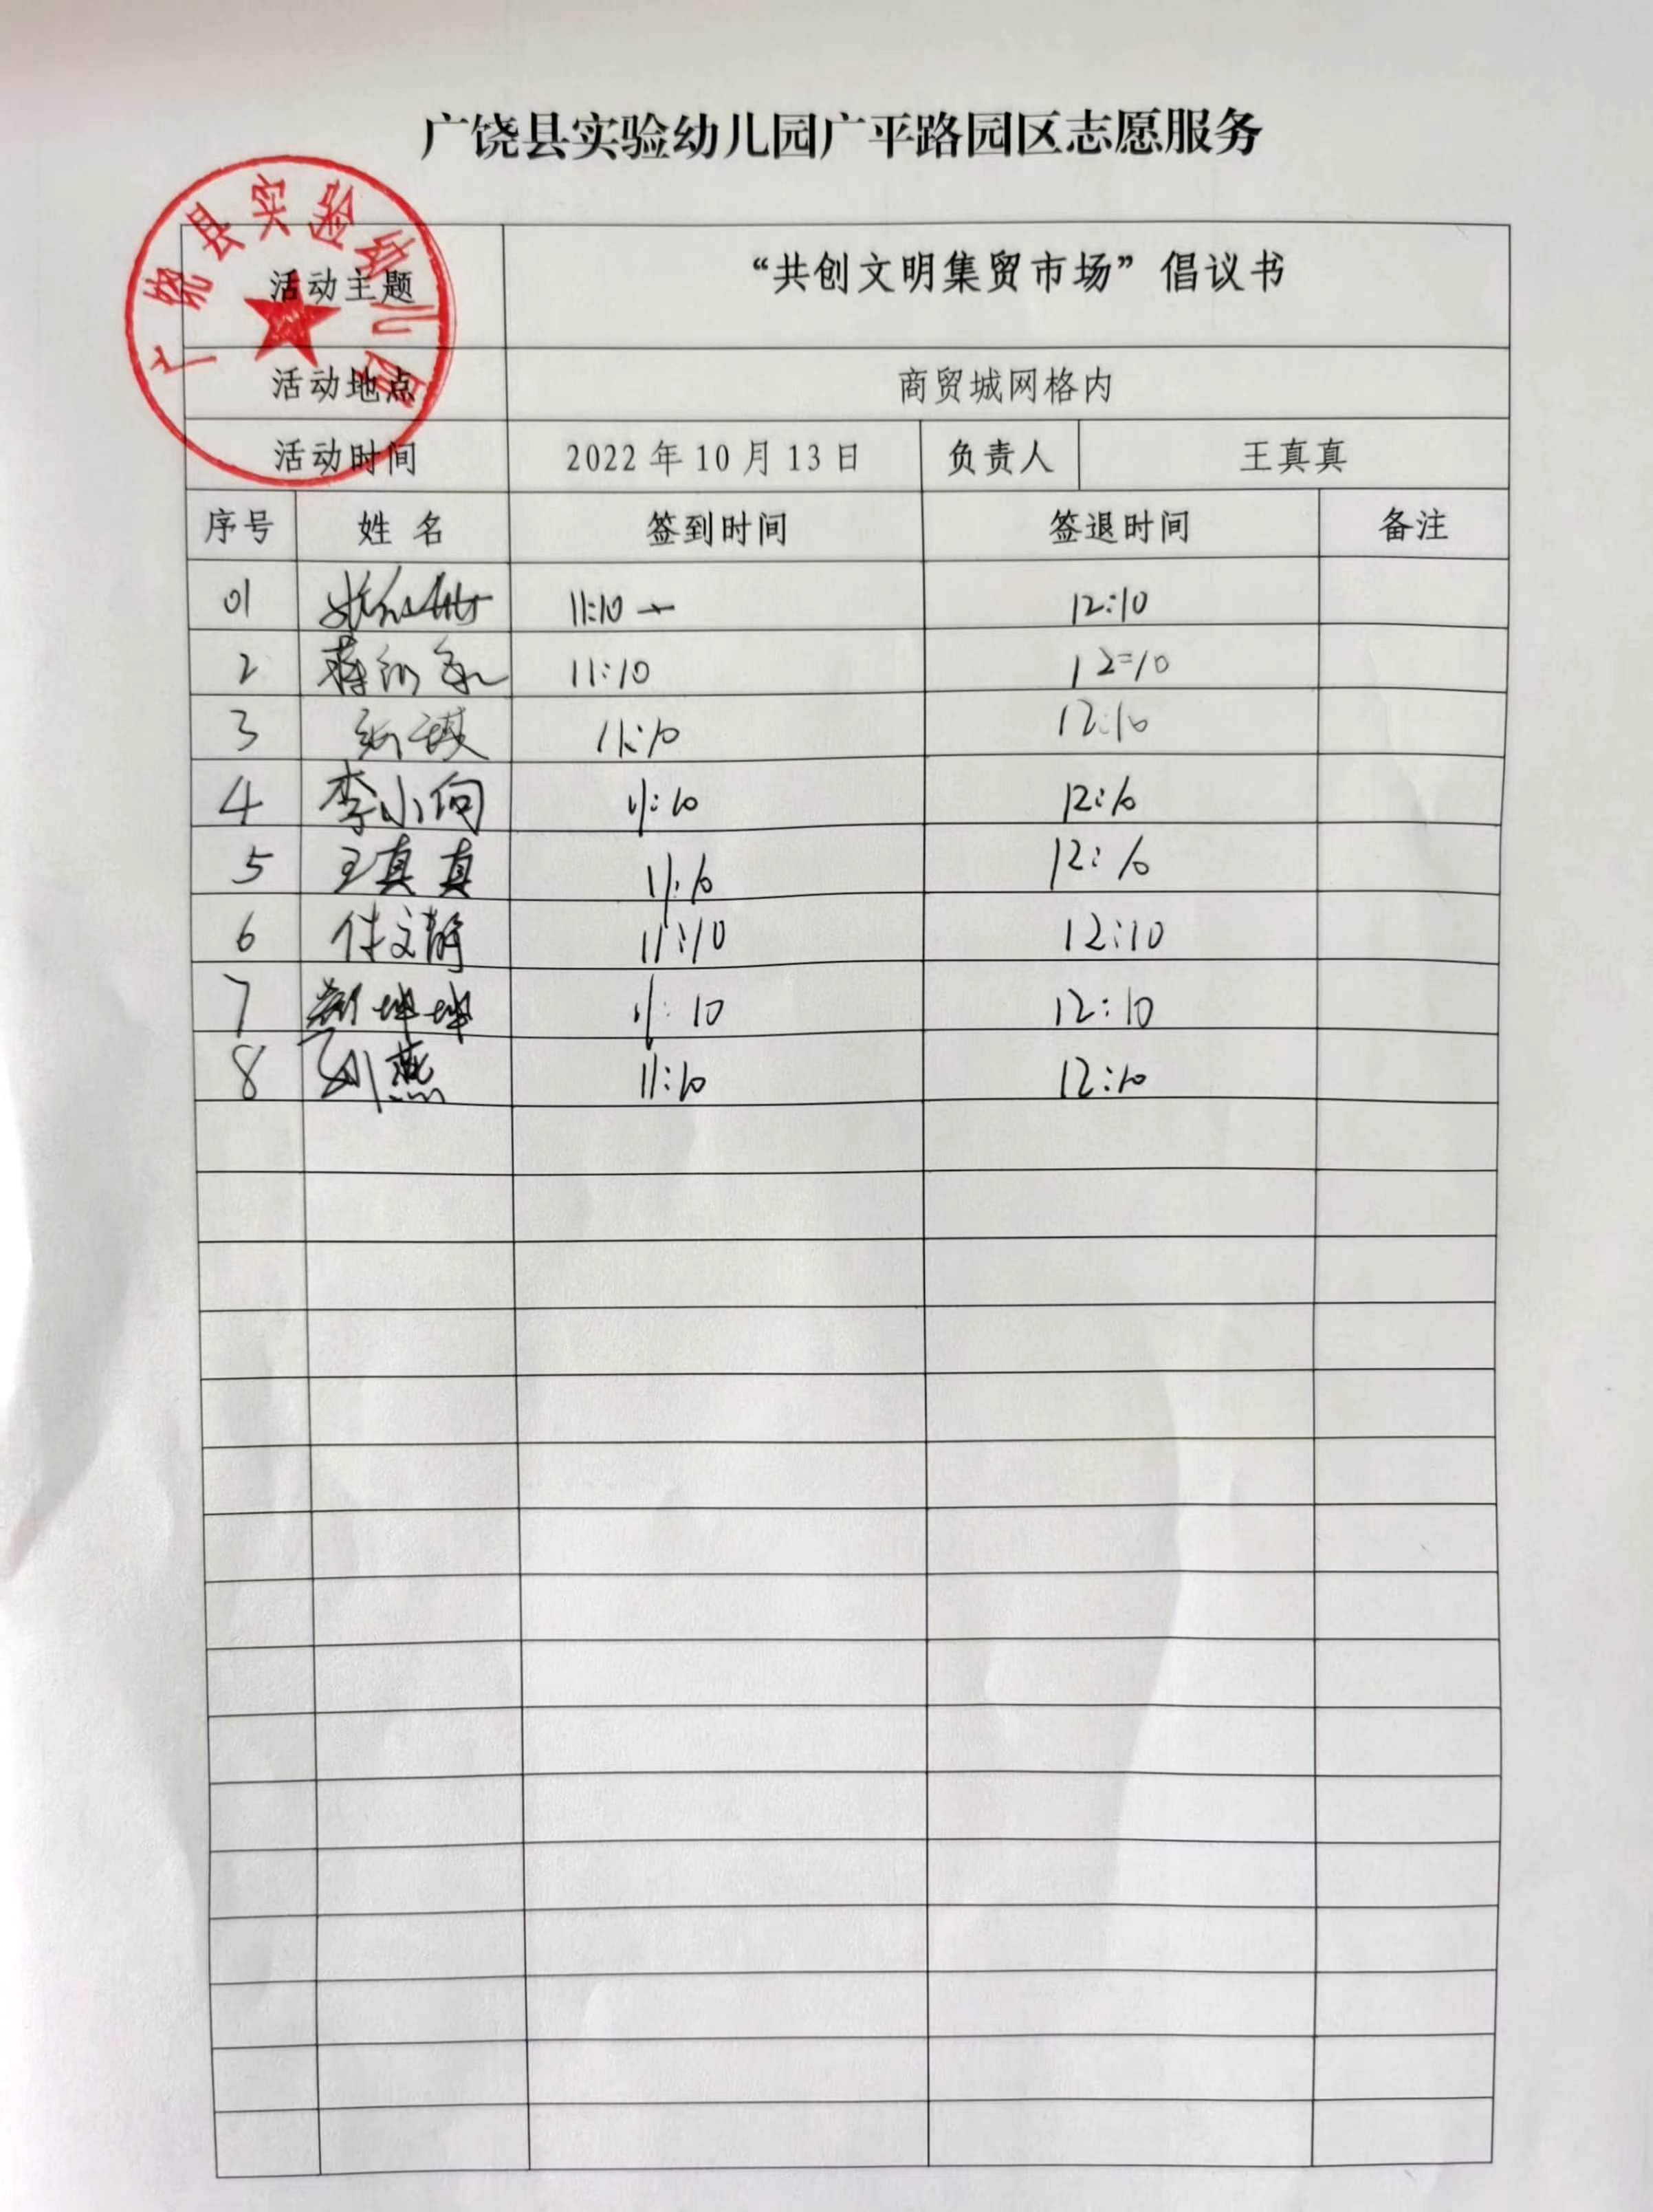 广饶县实验幼儿园广平路园区志愿服务
广饶县实验幼儿园
活动主题 “共创文明集贸市场”倡议书
活动地点 商贸城网格内
活动时间 2022年10月13日 负责人 王真真
序号 姓名 签到时间 签退时间 备注
01 11:10 12:10
2 11:10 12:10
3 11:10 12:10
4 李小向 11:10 12:10
5 王真真 11:10 12:10
6 付文静 11:10 12:10
7 坤坤 11:10 12:10
8 刘燕 11:10 12:10